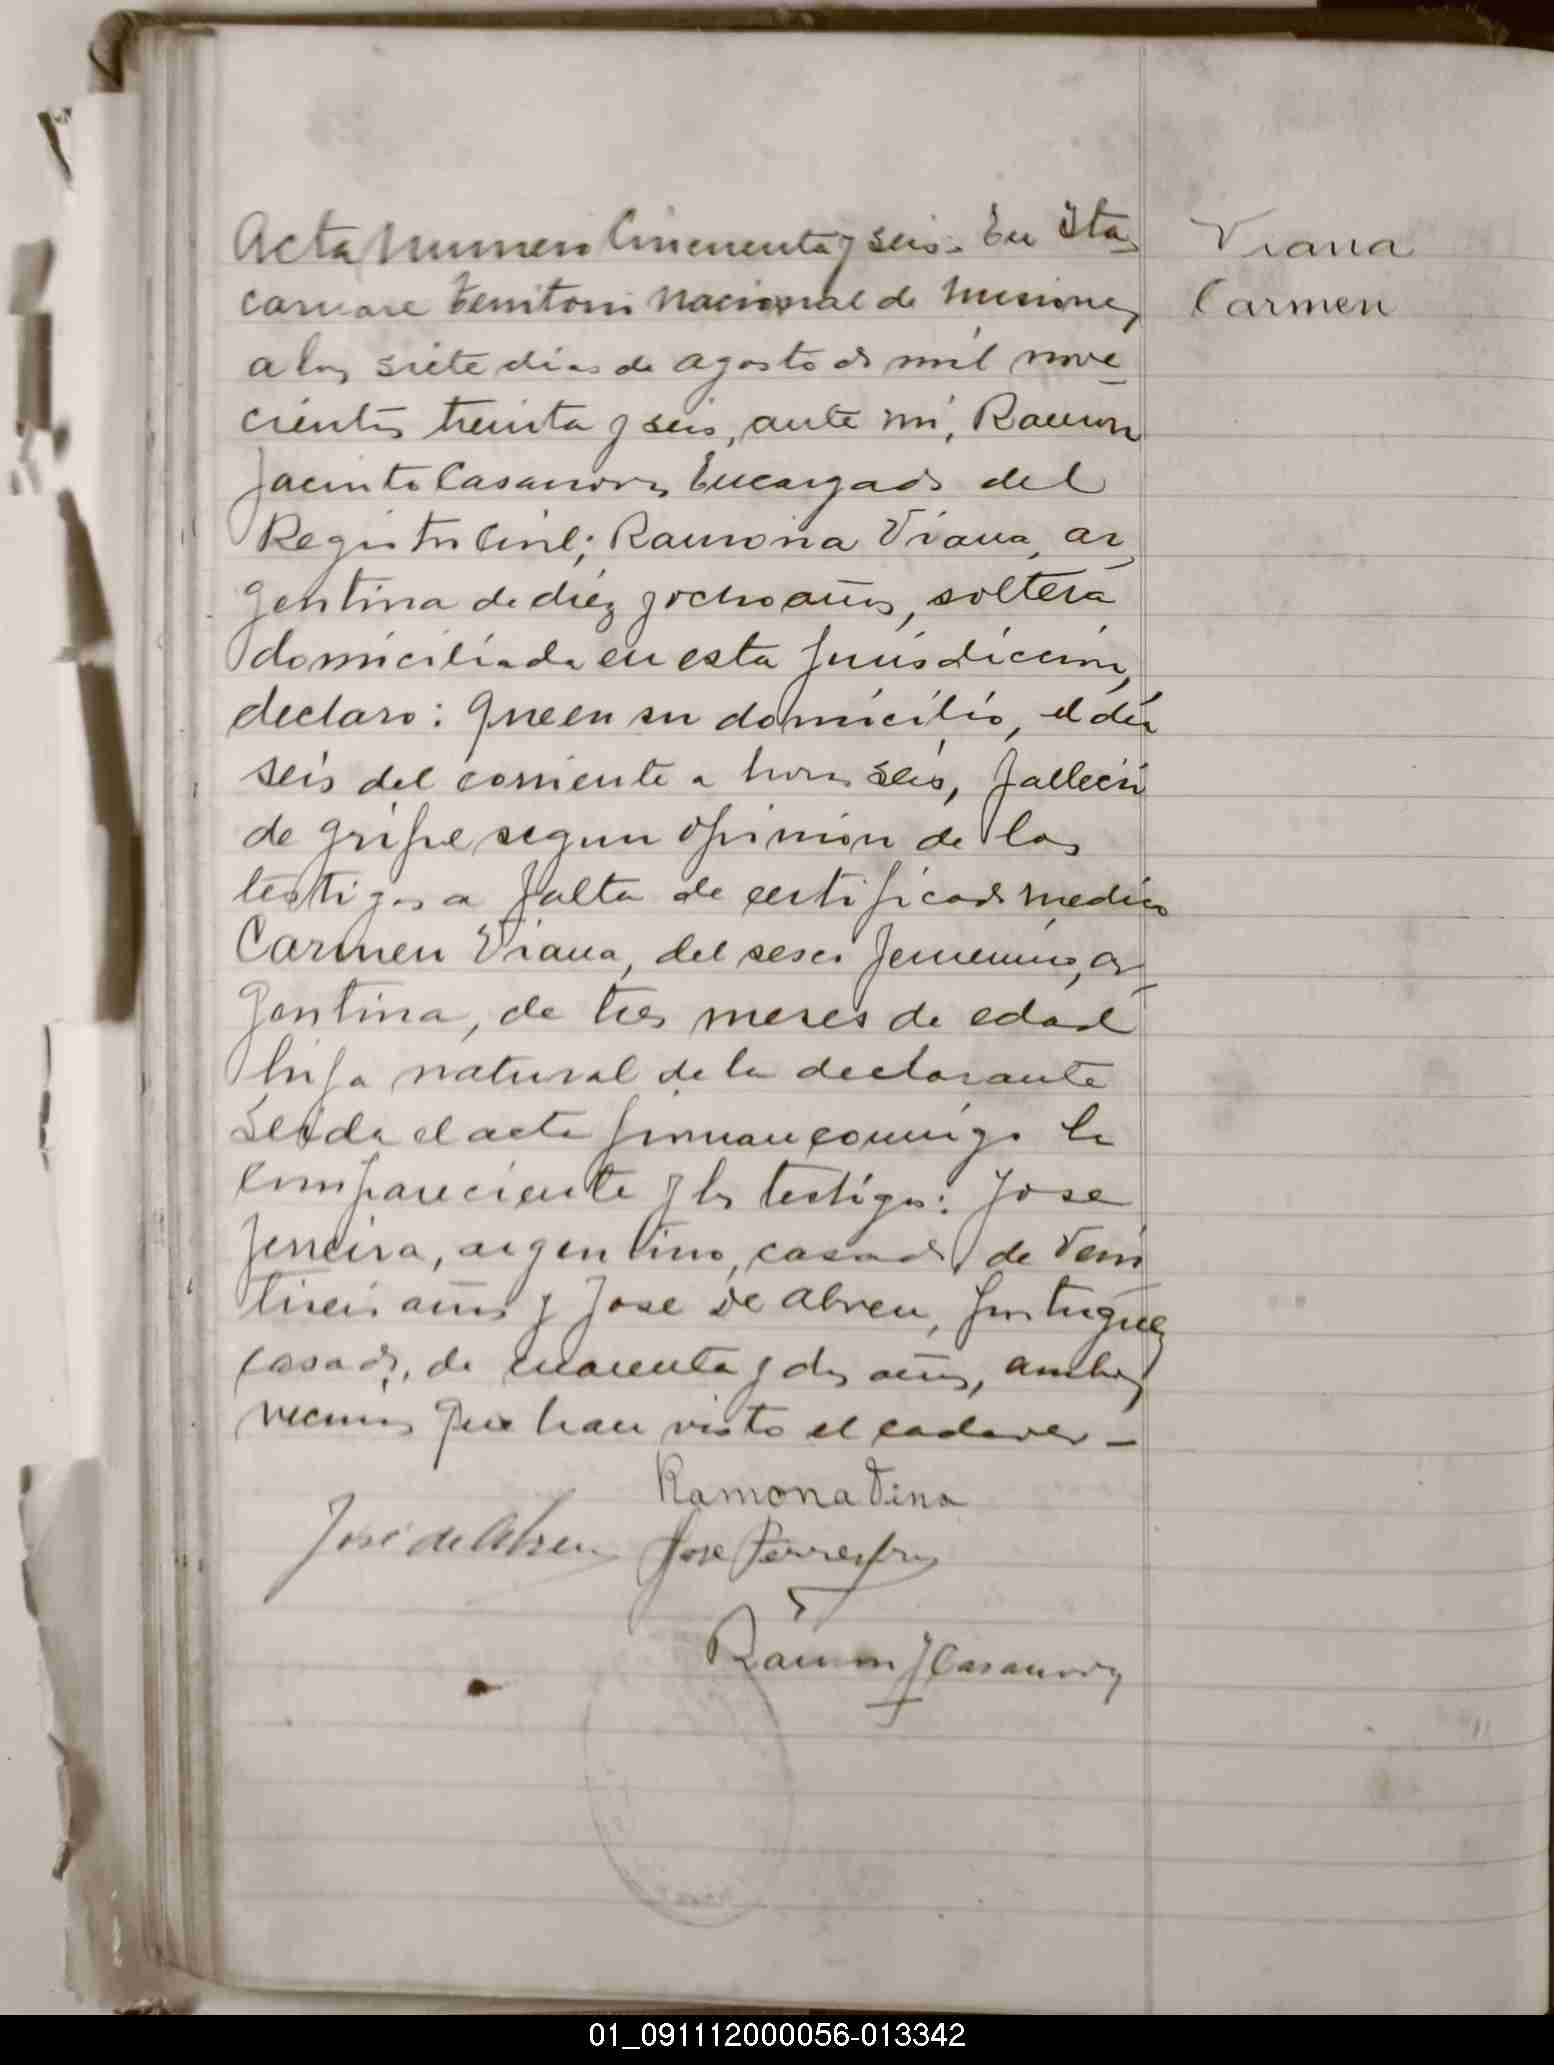 Acta numero Cincuenta y seis. En Ita
caruare territorio Nacional de Misiones
a los siete dias de agosto de mil nove
cientos treinta y seis, ante mi, Ramon
Jacinto Casanova Encargado del
Registro Civil; Ramona Viana, ar
gentina de diez y ocho años, soltera
domiciliada en esta jurisdiccion,
declaro: Que en su domicilio, el dia
seis del corriente a horas seis, fallecio
de gripe segun opinion de los
testigos a falta de certificado medico
Carmen Viana, del sexo femenino, ar
gentina, de tres meses de edad
hija natural de la declarante
Leida el acta firman conmigo la
compareciente y los testigos: Jose
Ferreira, argentino, casado, de vein
tiseis años y Jose de Abreu, portuguez
casado, de cuarenta y dos años, ambos
vecinos que han visto el cadaver -
Ramona Vina
José de Abreu Jose Ferreira
Ramon J Casanova
Viana
Carmen
01_091112000056-013342